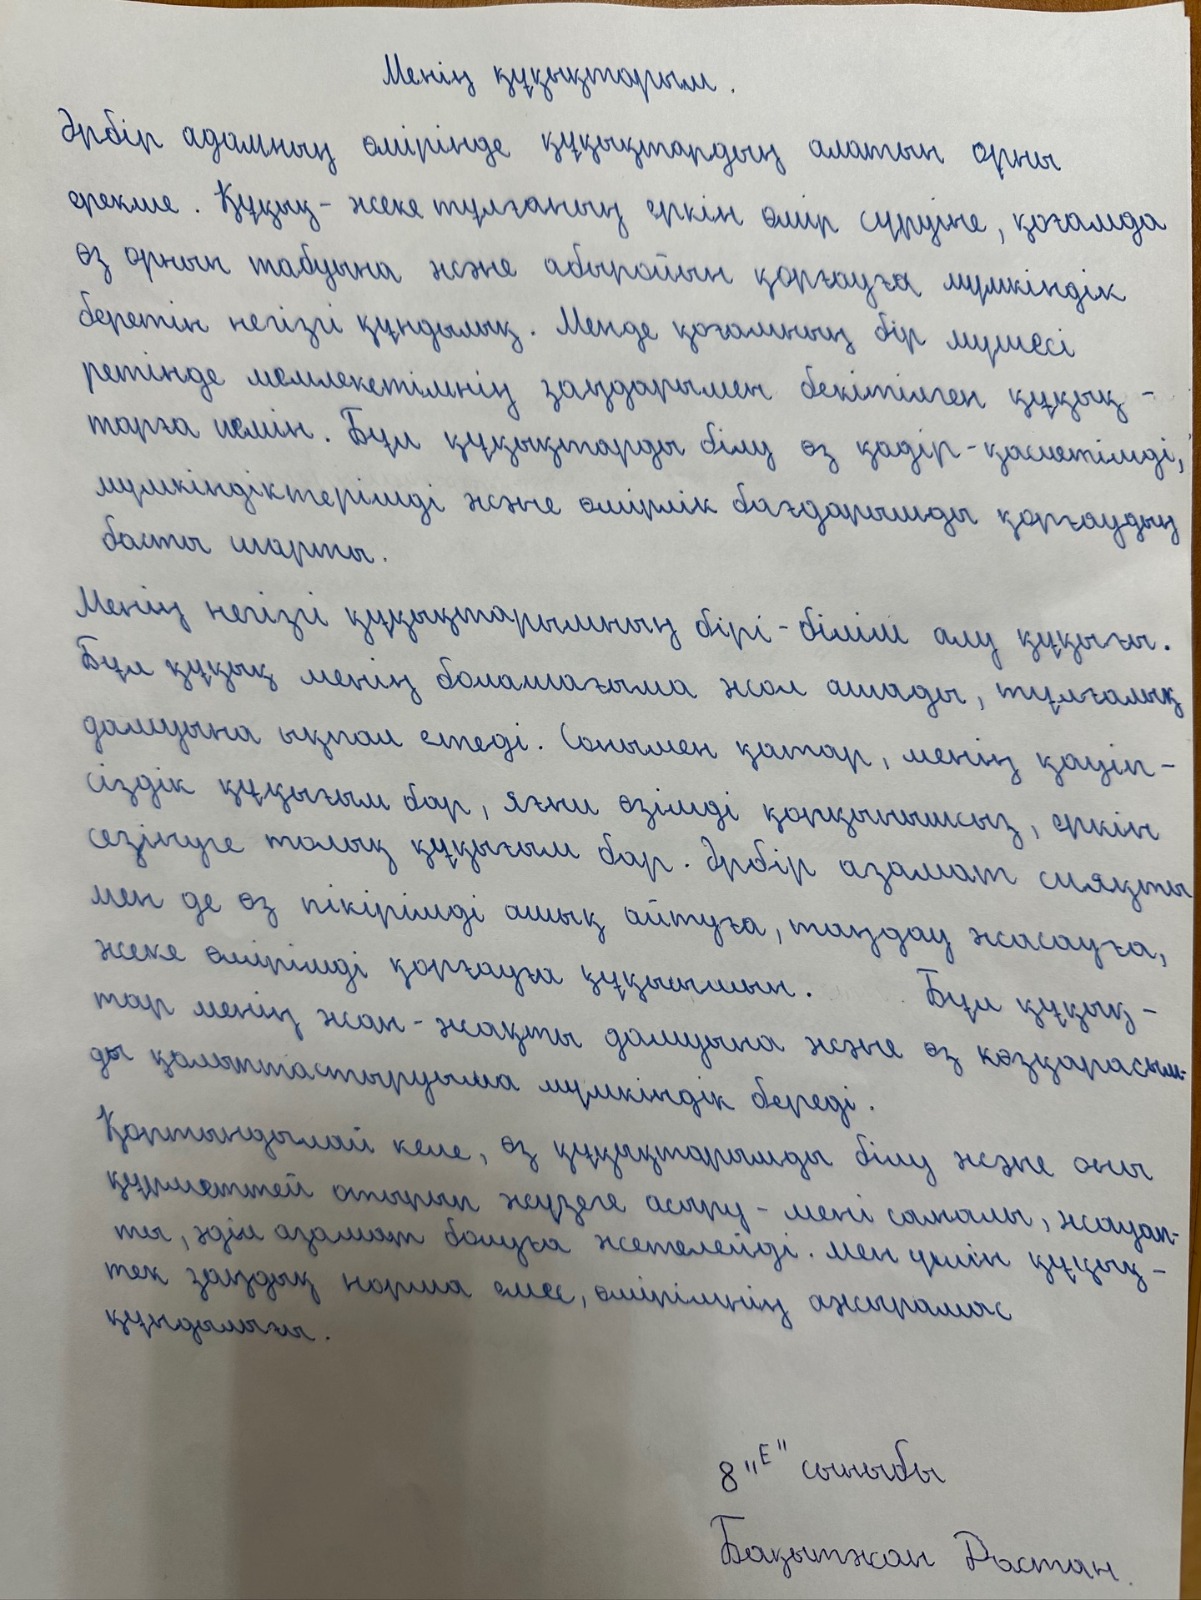 Менің құқықтарым.
Әрбір адамның өмірінде құқықтардың алатын орны
ерекше. Құқық - жеке тұлғаның еркін өмір сүруіне, қоғамда
өз орнын табуына және абыройын қорғауға мүмкіндік
беретін негізгі құндылық. Менде қоғамның бір мүшесі
ретінде мемлекетімнің заңдарымен бекітілген құқық-
тарға иемін. Бұл құқықтарды білу өз қадір-қасиетімді,
мүмкіндіктерімді және өмірлік бағдарымды қорғаудың
басты шарты.
Менің негізгі құқықтарымның бірі - білім алу құқығы.
Бұл құқық менің болашағыма жол ашады, тұлғалық
дамуына ықпал етеді. Сонымен қатар, менің қауіп-
сіздік құқығым бар, яғни өзімді қорқынышсыз, еркін
сезінуге толық құқығым бар. Әрбір азамат сияқты
мен де өз пікірімді ашық айтуға, таңдау жасауға,
жеке өмірімді қорғауға құқығымын. Бұл құқық-
тар менің жан-жақты дамуына және өз көзқарасым-
ды қалыптастыруыма мүмкіндік береді.
Қортындылай келе, өз құқықтарымды білу және оны
құрметтей отырып жүзеге асыру - мені саналы, жауап-
ты, әділ азамат болуға жетелейді. Мен үшін құқық -
тек заңдық норма емес, өмірімнің ажырамас
құндылығы.
8 "Е" сыныбы
Бақытжан Дастан.